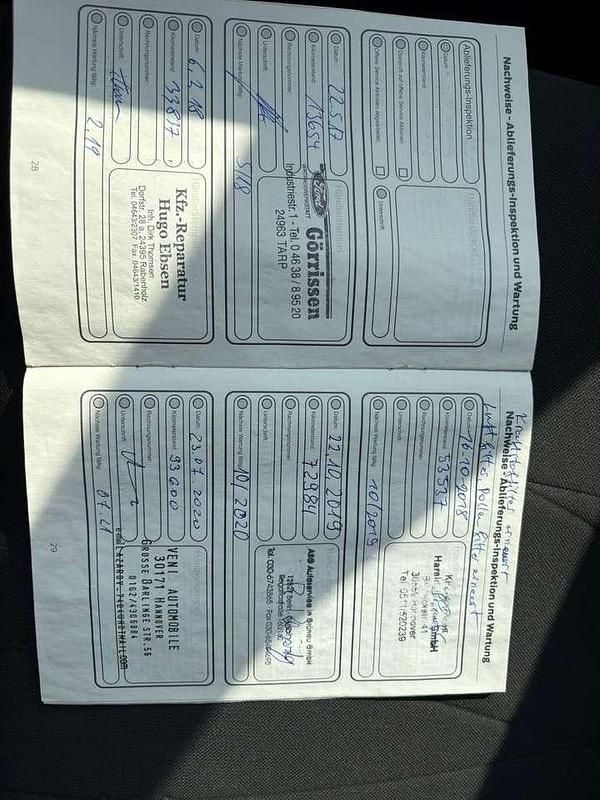 Nachweise - Ablieferungs-Inspektion und Wartung
Ablieferungs-Inspektion
Datum:
Kilometerstand:
Überprüft auf offene Service-Aktionen:
Offene Service-Aktionen abgearbeitet:
Unterschrift:
Datum: 22.5.17
Kilometerstand: 13654
Rechnungsnummer:
Unterschrift:
Nächste Wartung fällig: 5/18
Ford
Görrissen
Industriestr. 1 - Tel. 0 46 38 / 8 95 20
24963 TARP
Datum: 6.2.18
Kilometerstand: 33817
Rechnungsnummer:
Unterschrift:
Nächste Wartung fällig: 2.19
Kfz.-Reparatur
Hugo Ebsen
Inh. Dirk Thomsen
Dorfstr. 28 a, 24395 Rabenholz
Tel. 04643/2307 Fax 04643/1410
28
Kraftstofffilter erneuert
Nachweise - Ablieferungs-Inspektion und Wartung
Luftfilter, Pollenfilter erneuert
Datum: 16.10.2018
Kilometerstand: 53537
Rechnungsnummer:
Unterschrift:
Nächste Wartung fällig: 10/2019
GmbH
Hannover
Datum: 22.10.2019
Kilometerstand: 72984
Rechnungsnummer:
Unterschrift:
Nächste Wartung fällig: 10/2020
Autoservice
GmbH
Datum: 23.07.2020
Kilometerstand: 93600
Rechnungsnummer:
Unterschrift:
Nächste Wartung fällig: 07.21
VENI AUTOMOBILE
30171 HANNOVER
GROSSE BARLINGE STR.56
0162/4306884
29